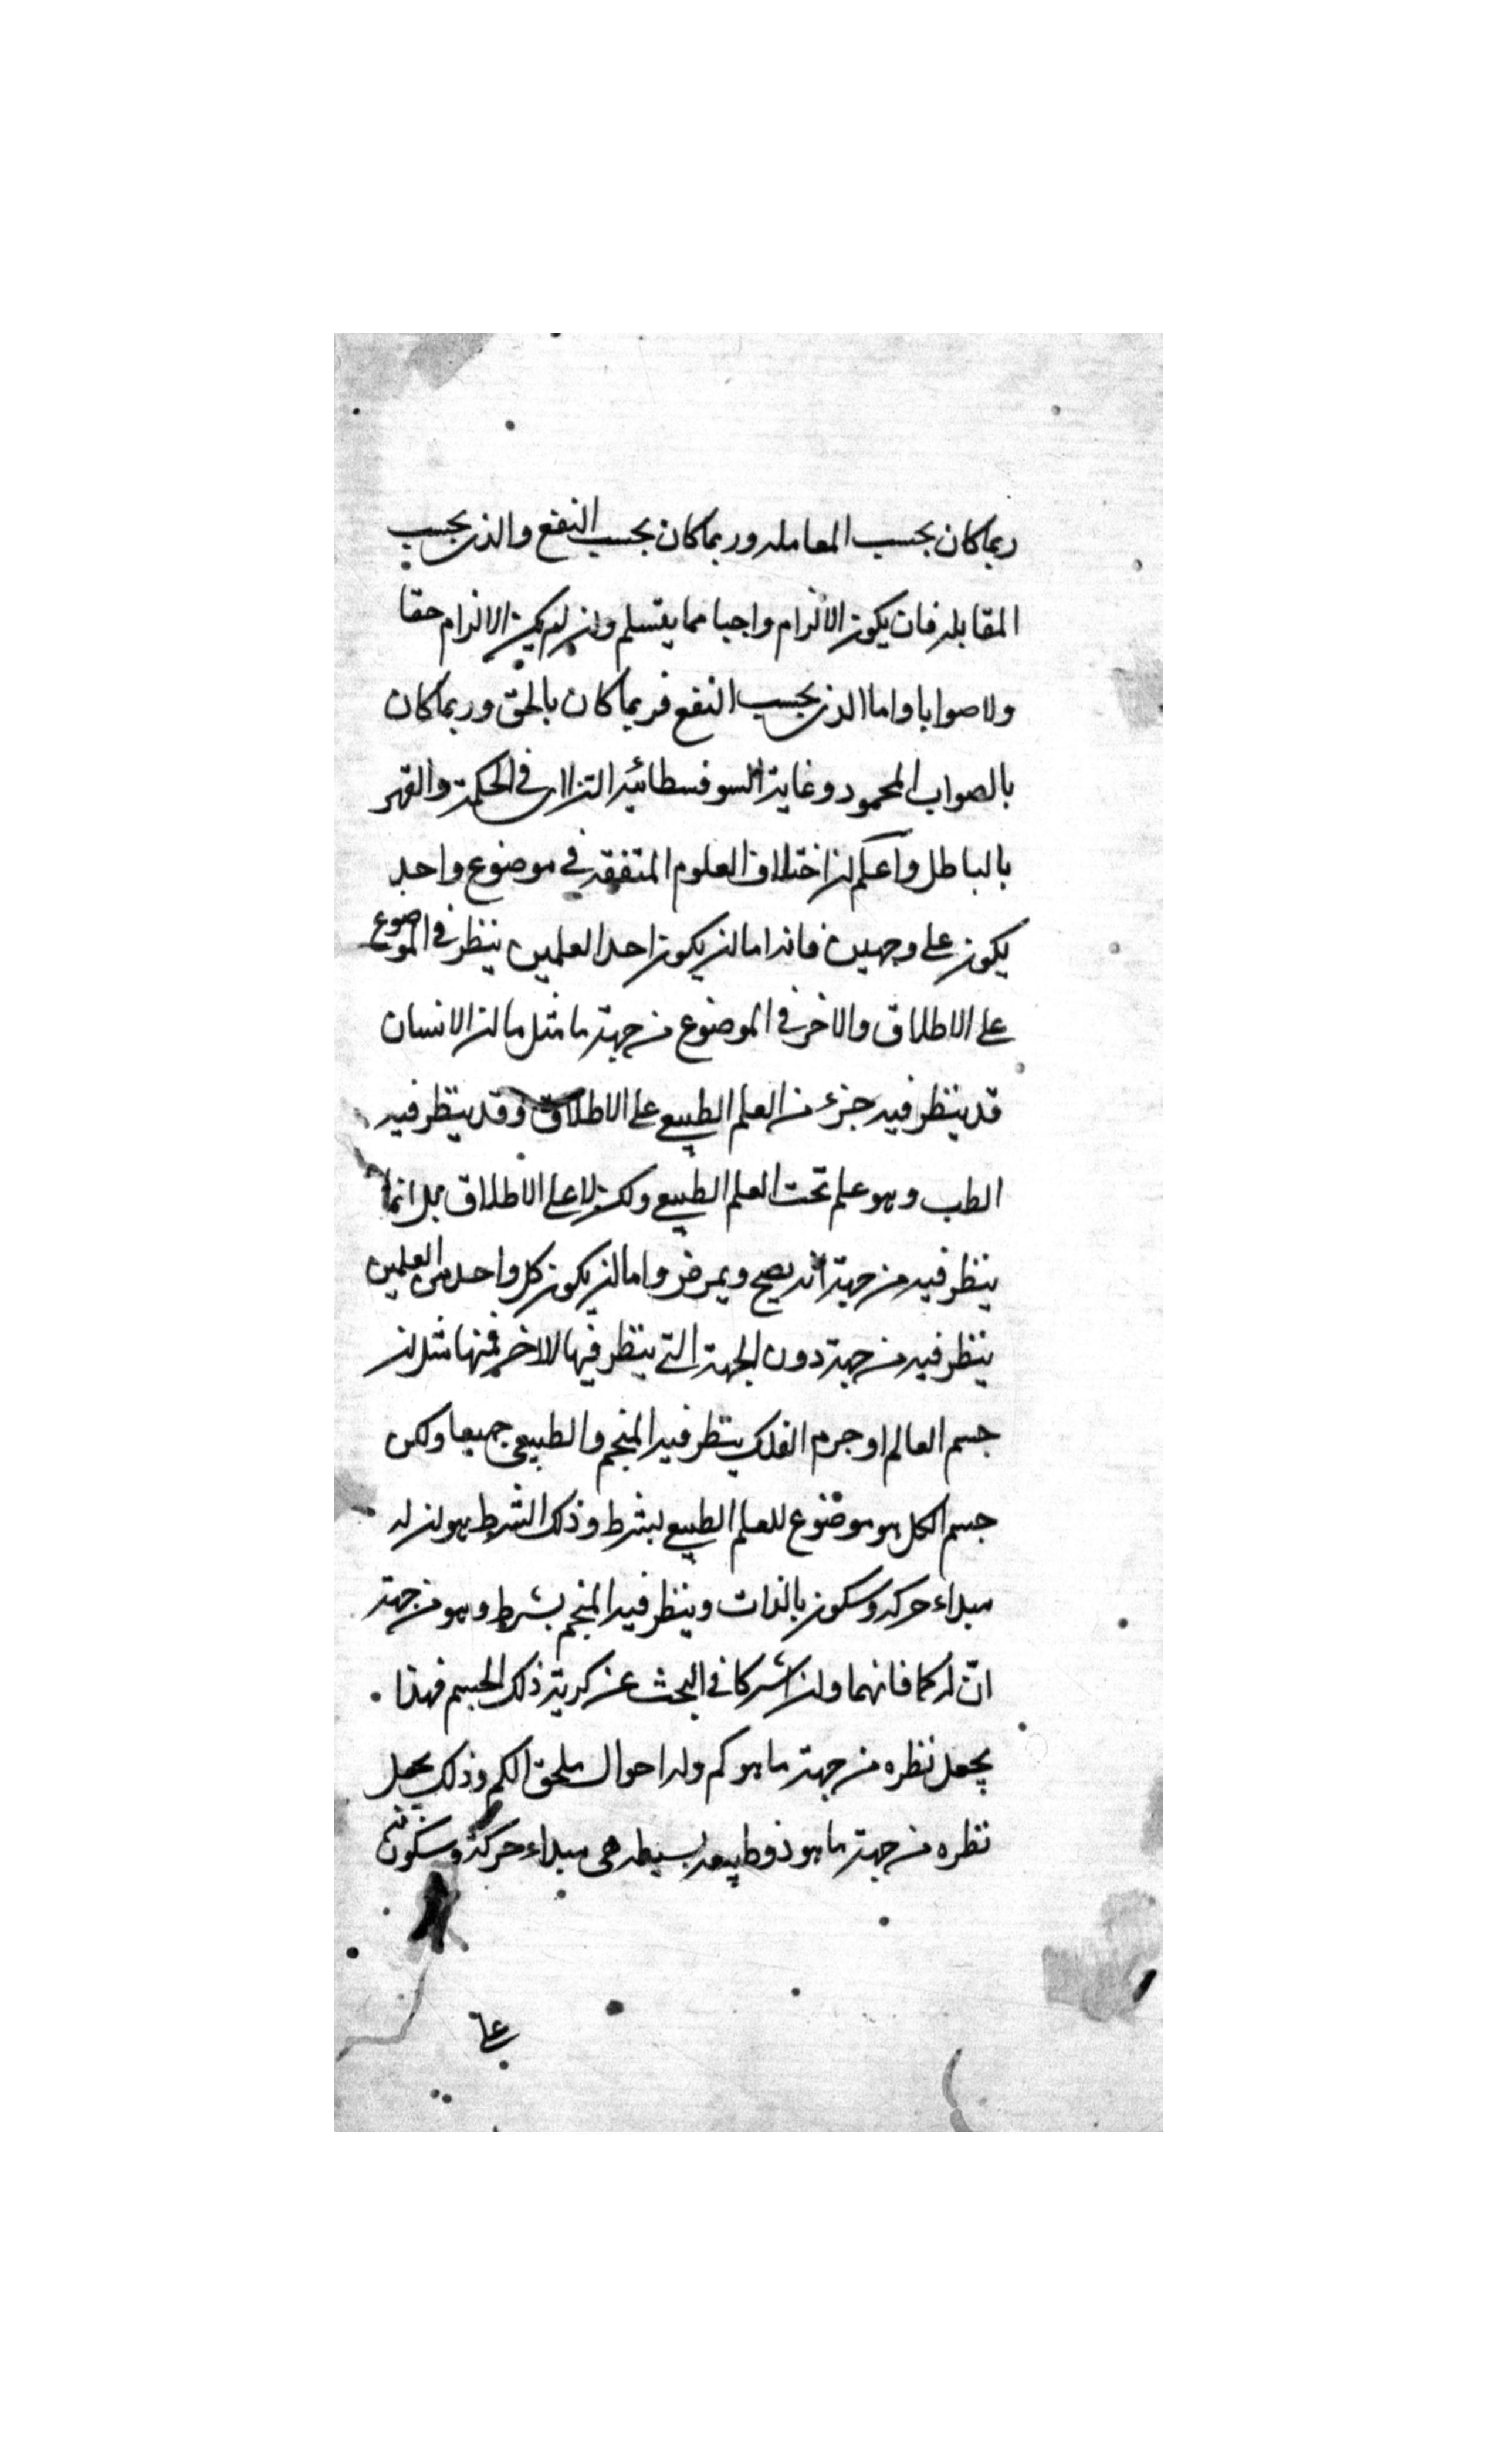 ربما كان بحسب المعامله وربما كان بحسب النفع والذى بحسب
المقابله فان يكون الالزام واجبا مما يتسلم وان لم يكن الالزام حقا
ولا صوابا واما الذى بحسب النفع فربما كان بالحق وربما كان
بالصواب المحمود وغاية السوفسطائيه الترااى فى الحكمة والقهر
بالباطل واعلم ان اختلاف العلوم المتفقه فى موضوع واحد
يكون على وجهين فانه اما ان يكون احد العلمين ينظر فى الموضوع
على الاطلاق والاخر فى الموضوع من جهة ما مثل ما ان الانسان
قد ينظر فيه جزء من العلم الطبيعى على الاطلاق وقد ينظر فيه
الطب وهو علم تحت العلم الطبيعى ولكن لا على الاطلاق بل انما
ينظر فيه من جهة انه يصح ويمرض واما ان يكون كل واحد من العلمين
ينظر فيه من جهة دون الجهة التى ينظر فيها الاخر فمنها مثل ان
جسم العالم او جرم الفلك ينظر فيه المنجم والطبيعى جميعا ولكن
جسم الكل هو موضوع للعلم الطبيعى بشرط وذلك الشرط هو ان له
مبداء حركه وسكون بالذات وينظر فيه المنجم بشرط وهو من جهة
انّ له كما فانهما وان اشركا فى البحث عن كرية ذلك الجسم فهذا
يجعل نظره من جهة ما هو كم وله احوال ملحق الكم وذلك يجعل
نظره من جهة ما هو ذو طبيعه بسيطه هى مبداء حركة وسكونه
على